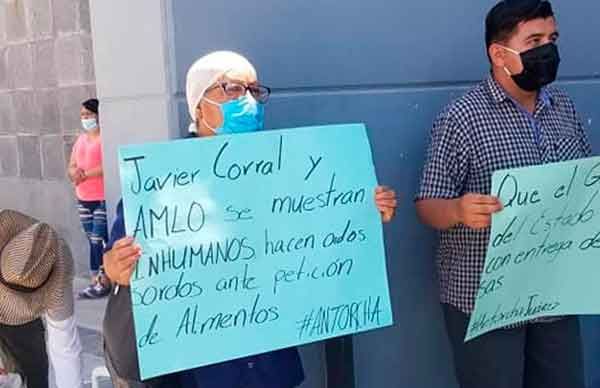 Javier Corral y
AMLO se muestran
INHUMANOS, hacen oidos
sordos ante petición
de Alimentos #ANTORCHA
Que el G
del Estado
con entrega de
sas
#Antorcha Juárez